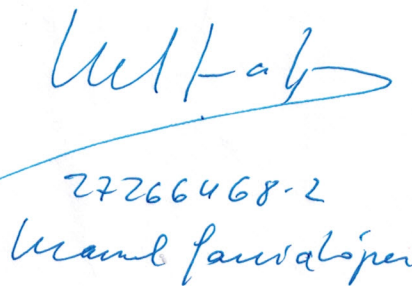 27266468-2
Manuel García López